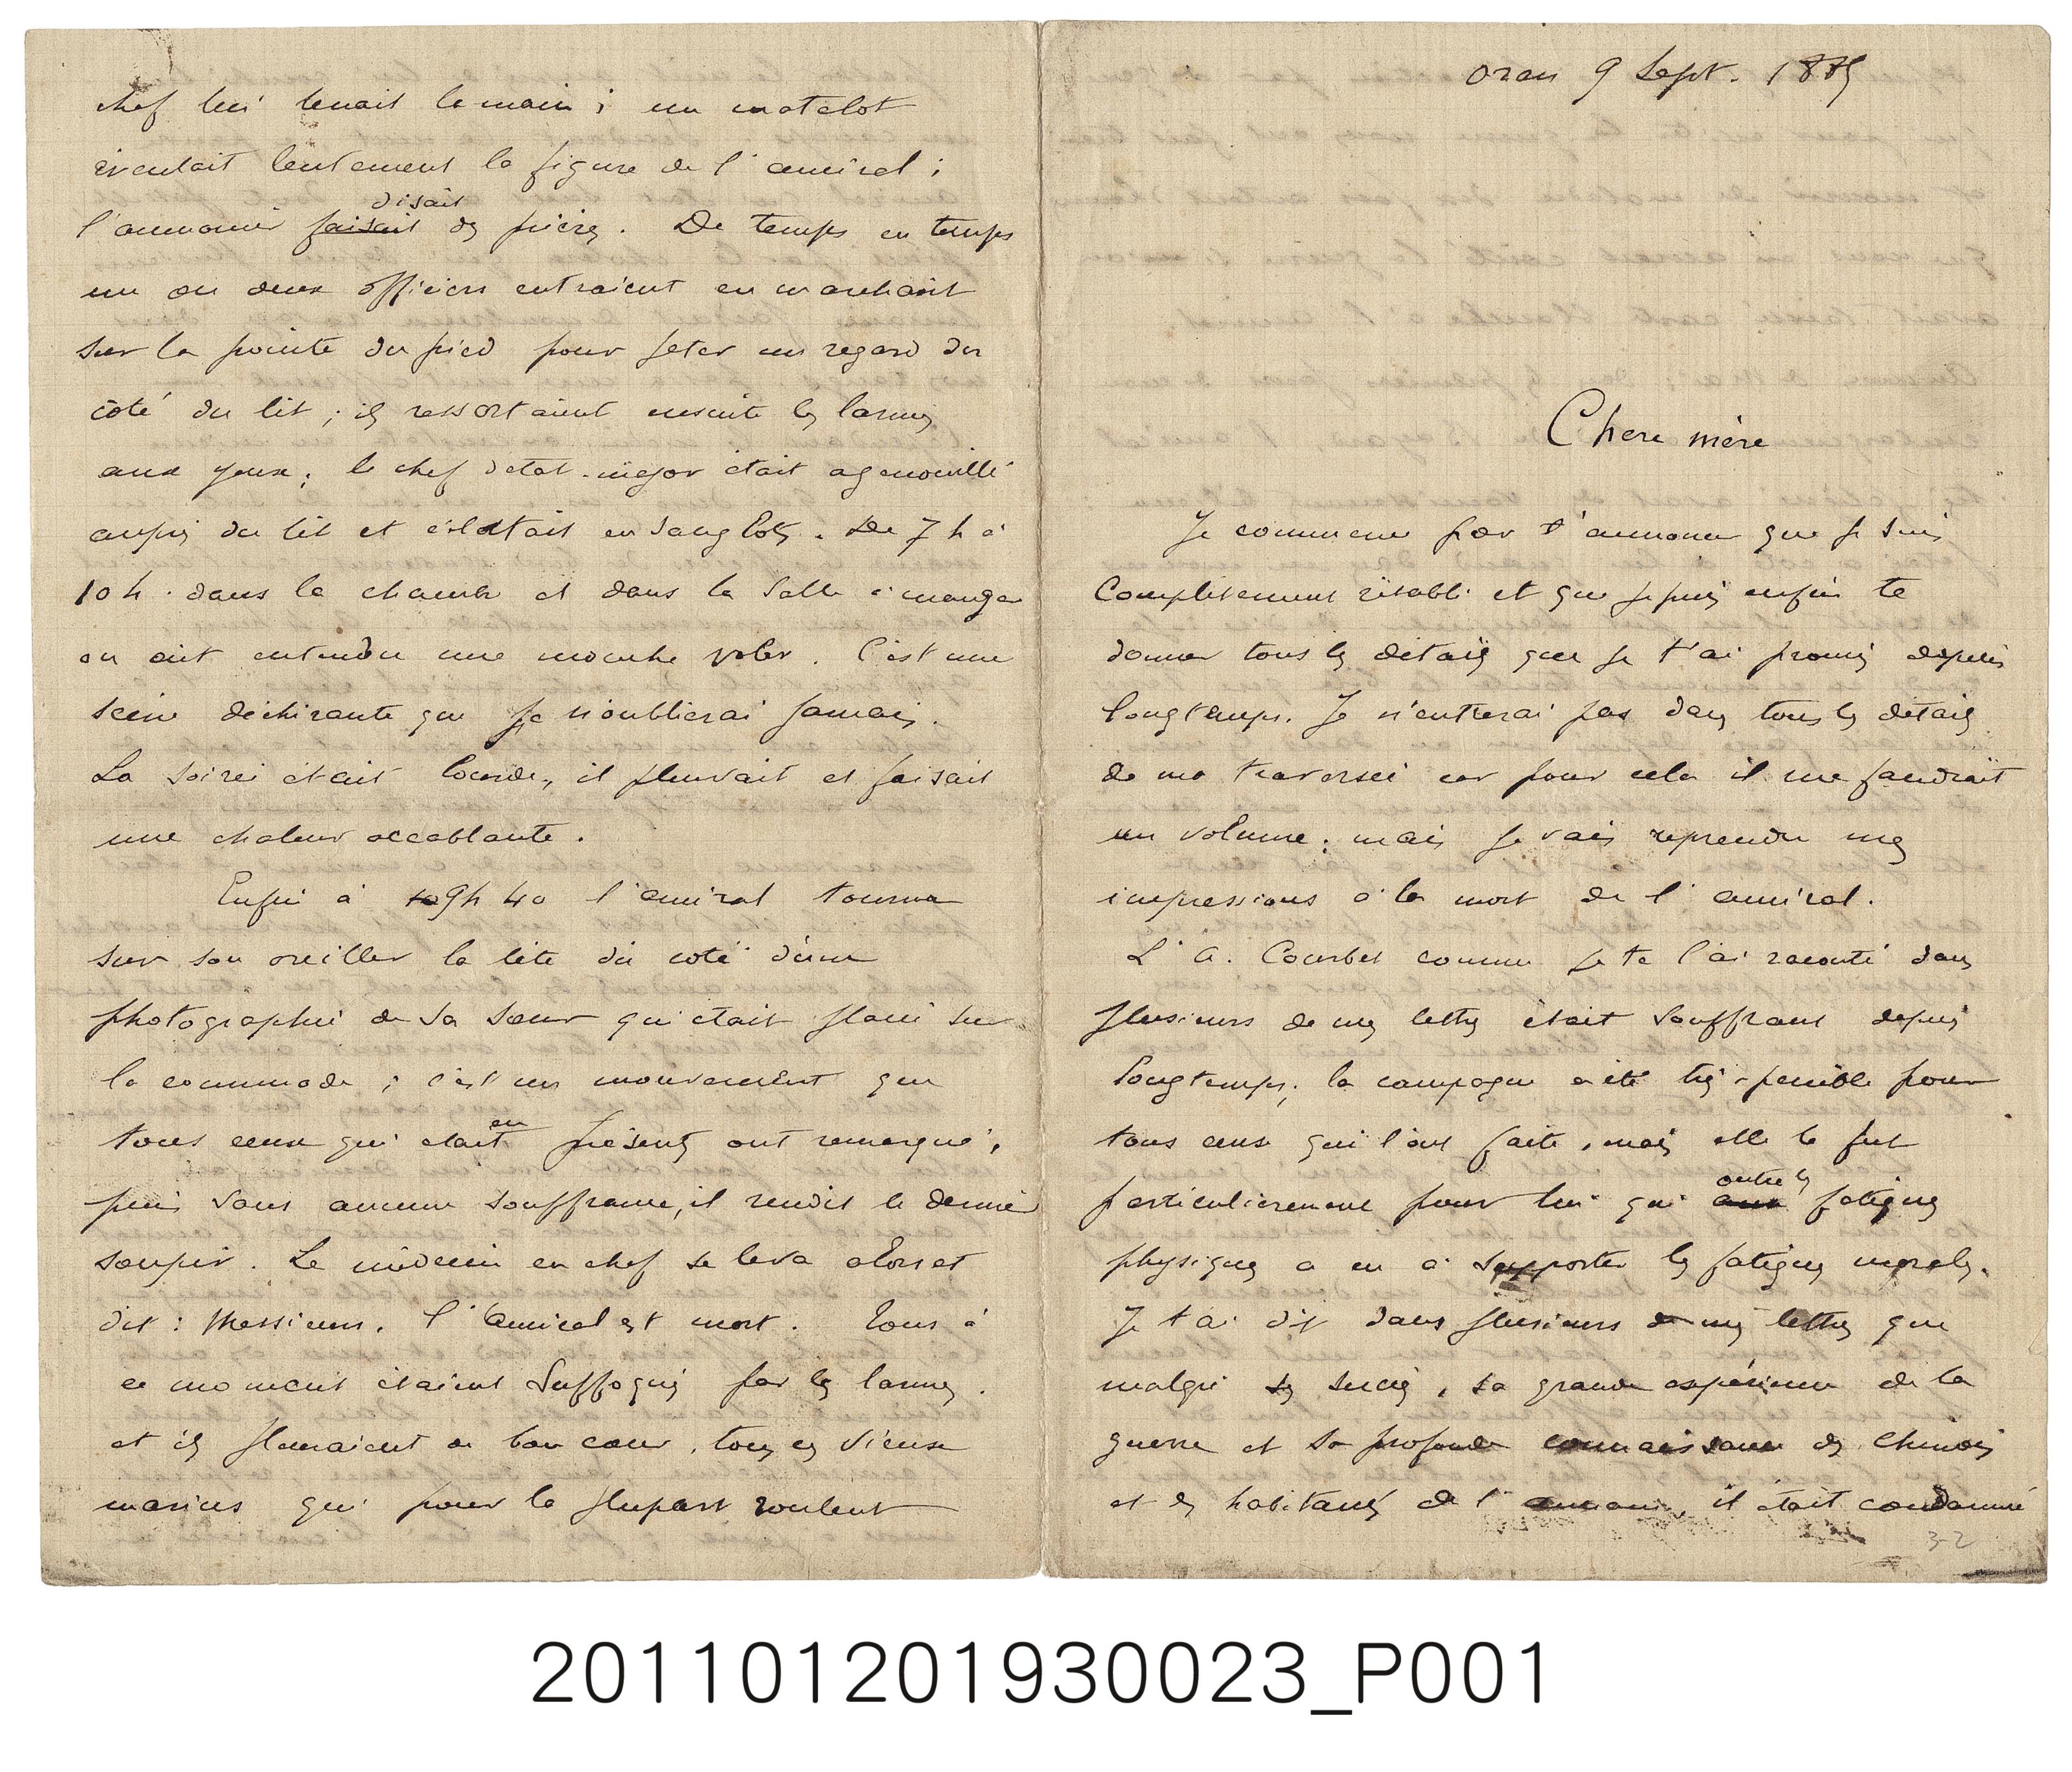 Oran 9 Sept. 1885
Chere mère
Je commence par t'annoncer que je suis
complètement rétabli et que je puis enfin te
donner tous les détails que je t'ai promis depuis
longtemps. Je n'entrerai pas dans tous les détails
de ma traversée car pour cela il me faudrait
un volume ; mais je vais reprendre mes
impressions à la mort de l'amiral.
L'A. Courbet comme je te l'ai raconté dans
plusieurs de mes lettres était souffrant depuis
longtemps ; la campagne a été très-pénible pour
tous ceux qui l'ont faite, mais elle le fut
outre les
particulierement pour lui qui aux fatigues
physiques a eu à supporter les fatigues morales.
Je t'ai dit dans plusieurs de mes lettres que
malgré ses succès, sa grande expérience de la
guerre et sa profonde connaissance des Chinois
et des habitants de l'annam, il était condamné
3-2
chef lui tenait la main ; un matelot
éventait lentement la figure de l'amiral ;
disait
l'aumonier faisait des prières. De temps en temps
un ou deux officiers entraient en marchant
sur la pointe du pied pour jeter un regard du
coté du lit ; ils ressortaient ensuite les larmes
aux yeux ; le chef d'etat-major était agenouillé
auprès du lit et éclatait en sanglots. De 7 h à
10 h. dans la chambre et dans la salle à manger
on ait entendu une mouche voler. C'est une
scène déchirante que je n'oublierai jamais.
La soirée était lourde, il pleuvait et faisait
une chaleur accablante.
Enfin à 10 9h 40 l'amiral tourna
sur son oreiller la tête du coté d'une
photographie de sa sœur qui était placée sur
la commode ; c'est un mouvement que
en
tous ceux qui etait présents ont remarqué ;
puis sans aucune souffrance, il rendit le dernier
soupir. Le médecin en chef se leva alors et
dit : Messieurs, l'Amiral est mort. Tous à
ce moment étaient suffoqués par les larmes.
et ils pleuraient de bon cœur, tous ces vieux
marins qui pour la plupart roulent
201101201930023_P001